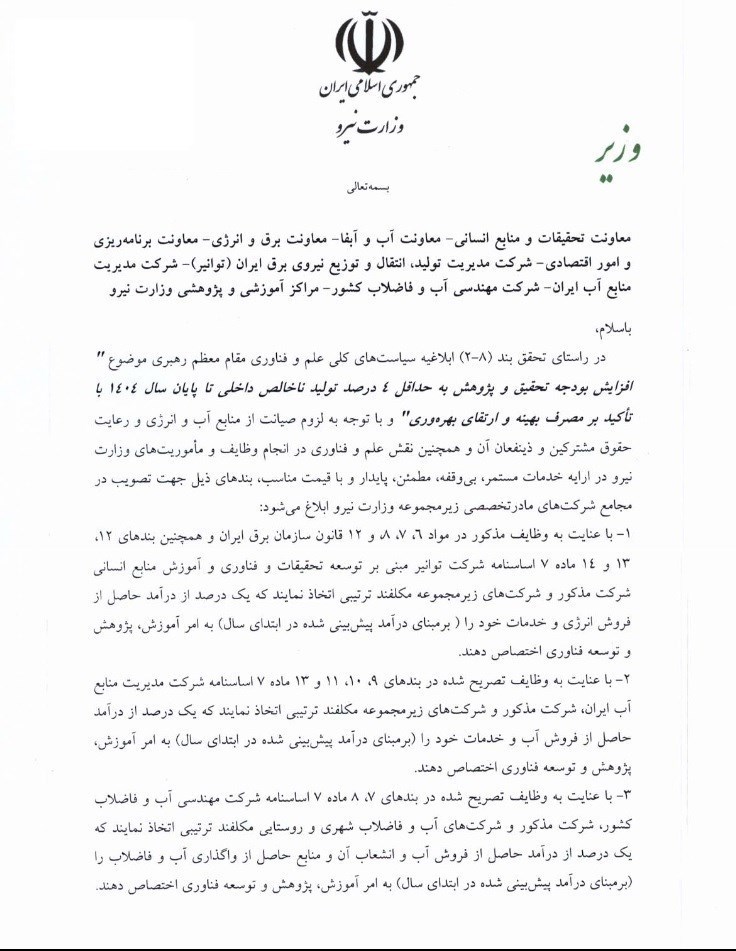 جمهوری اسلامی ایران
وزارت نیرو
وزیر
بسمه‌تعالی
معاونت تحقیقات و منابع انسانی- معاونت آب و آبفا- معاونت برق و انرژی- معاونت برنامه‌ریزی
و امور اقتصادی- شرکت مدیریت تولید، انتقال و توزیع نیروی برق ایران (توانیر)- شرکت مدیریت
منابع آب ایران- شرکت مهندسی آب و فاضلاب کشور- مراکز آموزشی و پژوهشی وزارت نیرو
باسلام،
در راستای تحقق بند (۸-۲) ابلاغیه سیاست‌های کلی علم و فناوری مقام معظم رهبری موضوع "
افزایش بودجه تحقیق و پژوهش به حداقل ۴ درصد تولید ناخالص داخلی تا پایان سال ۱۴۰۴ با
تأکید بر مصرف بهینه و ارتقای بهره‌وری" و با توجه به لزوم صیانت از منابع آب و انرژی و رعایت
حقوق مشترکین و ذینفعان آن و همچنین نقش علم و فناوری در انجام وظایف و مأموریت‌های وزارت
نیرو در ارایه خدمات مستمر، بی‌وقفه، مطمئن، پایدار و با قیمت مناسب، بندهای ذیل جهت تصویب در
مجامع شرکت‌های مادرتخصصی زیرمجموعه وزارت نیرو ابلاغ می‌شود:
۱- با عنایت به وظایف مذکور در مواد ۶، ۷، ۸، و ۱۲ قانون سازمان برق ایران و همچنین بندهای ۱۲،
۱۳ و ۱۴ ماده ۷ اساسنامه شرکت توانیر مبنی بر توسعه تحقیقات و فناوری و آموزش منابع انسانی
شرکت مذکور و شرکت‌های زیرمجموعه مکلفند ترتیبی اتخاذ نمایند که یک درصد از درآمد حاصل از
فروش انرژی و خدمات خود را ( برمبنای درآمد پیش‌بینی شده در ابتدای سال) به امر آموزش، پژوهش
و توسعه فناوری اختصاص دهند.
۲- با عنایت به وظایف تصریح شده در بندهای ۹، ۱۰، ۱۱ و ۱۳ ماده ۷ اساسنامه شرکت مدیریت منابع
آب ایران، شرکت مذکور و شرکت‌های زیرمجموعه مکلفند ترتیبی اتخاذ نمایند که یک درصد از درآمد
حاصل از فروش آب و خدمات خود را (برمبنای درآمد پیش‌بینی شده در ابتدای سال) به امر آموزش،
پژوهش و توسعه فناوری اختصاص دهند.
۳- با عنایت به وظایف تصریح شده در بندهای ۷، ۸ ماده ۷ اساسنامه شرکت مهندسی آب و فاضلاب
کشور، شرکت مذکور و شرکت‌های آب و فاضلاب شهری و روستایی مکلفند ترتیبی اتخاذ نمایند که
یک درصد از درآمد حاصل از فروش آب و انشعاب آن و منابع حاصل از واگذاری آب و فاضلاب را
(برمبنای درآمد پیش‌بینی شده در ابتدای سال) به امر آموزش، پژوهش و توسعه فناوری اختصاص دهند.